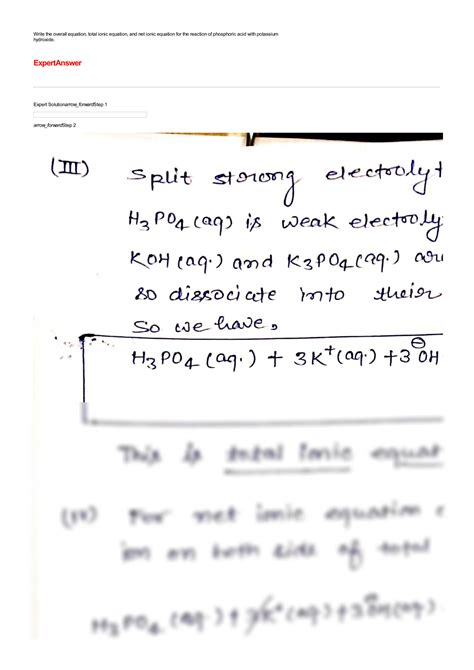 Write the overall equation, total ionic equation, and net ionic equation for the reaction of phosphoric acid with potassium
hydroxide.
ExpertAnswer
Expert Solutionarrow_forwardStep 1
arrow_forwardStep 2
(III) Split strong electrolyt
H₃PO₄(aq) is weak electroly
KOH (aq.) and K₃PO₄(aq.) are
so dissociate into their
So we have,
H₃PO₄(aq.) + 3K⁺(aq.) + 3 OH
This is total ionic equat
(IV) For net ionic equation
ion on both side of total
H₃PO₄(aq.) + 3K⁺(aq) + 3OH(aq)